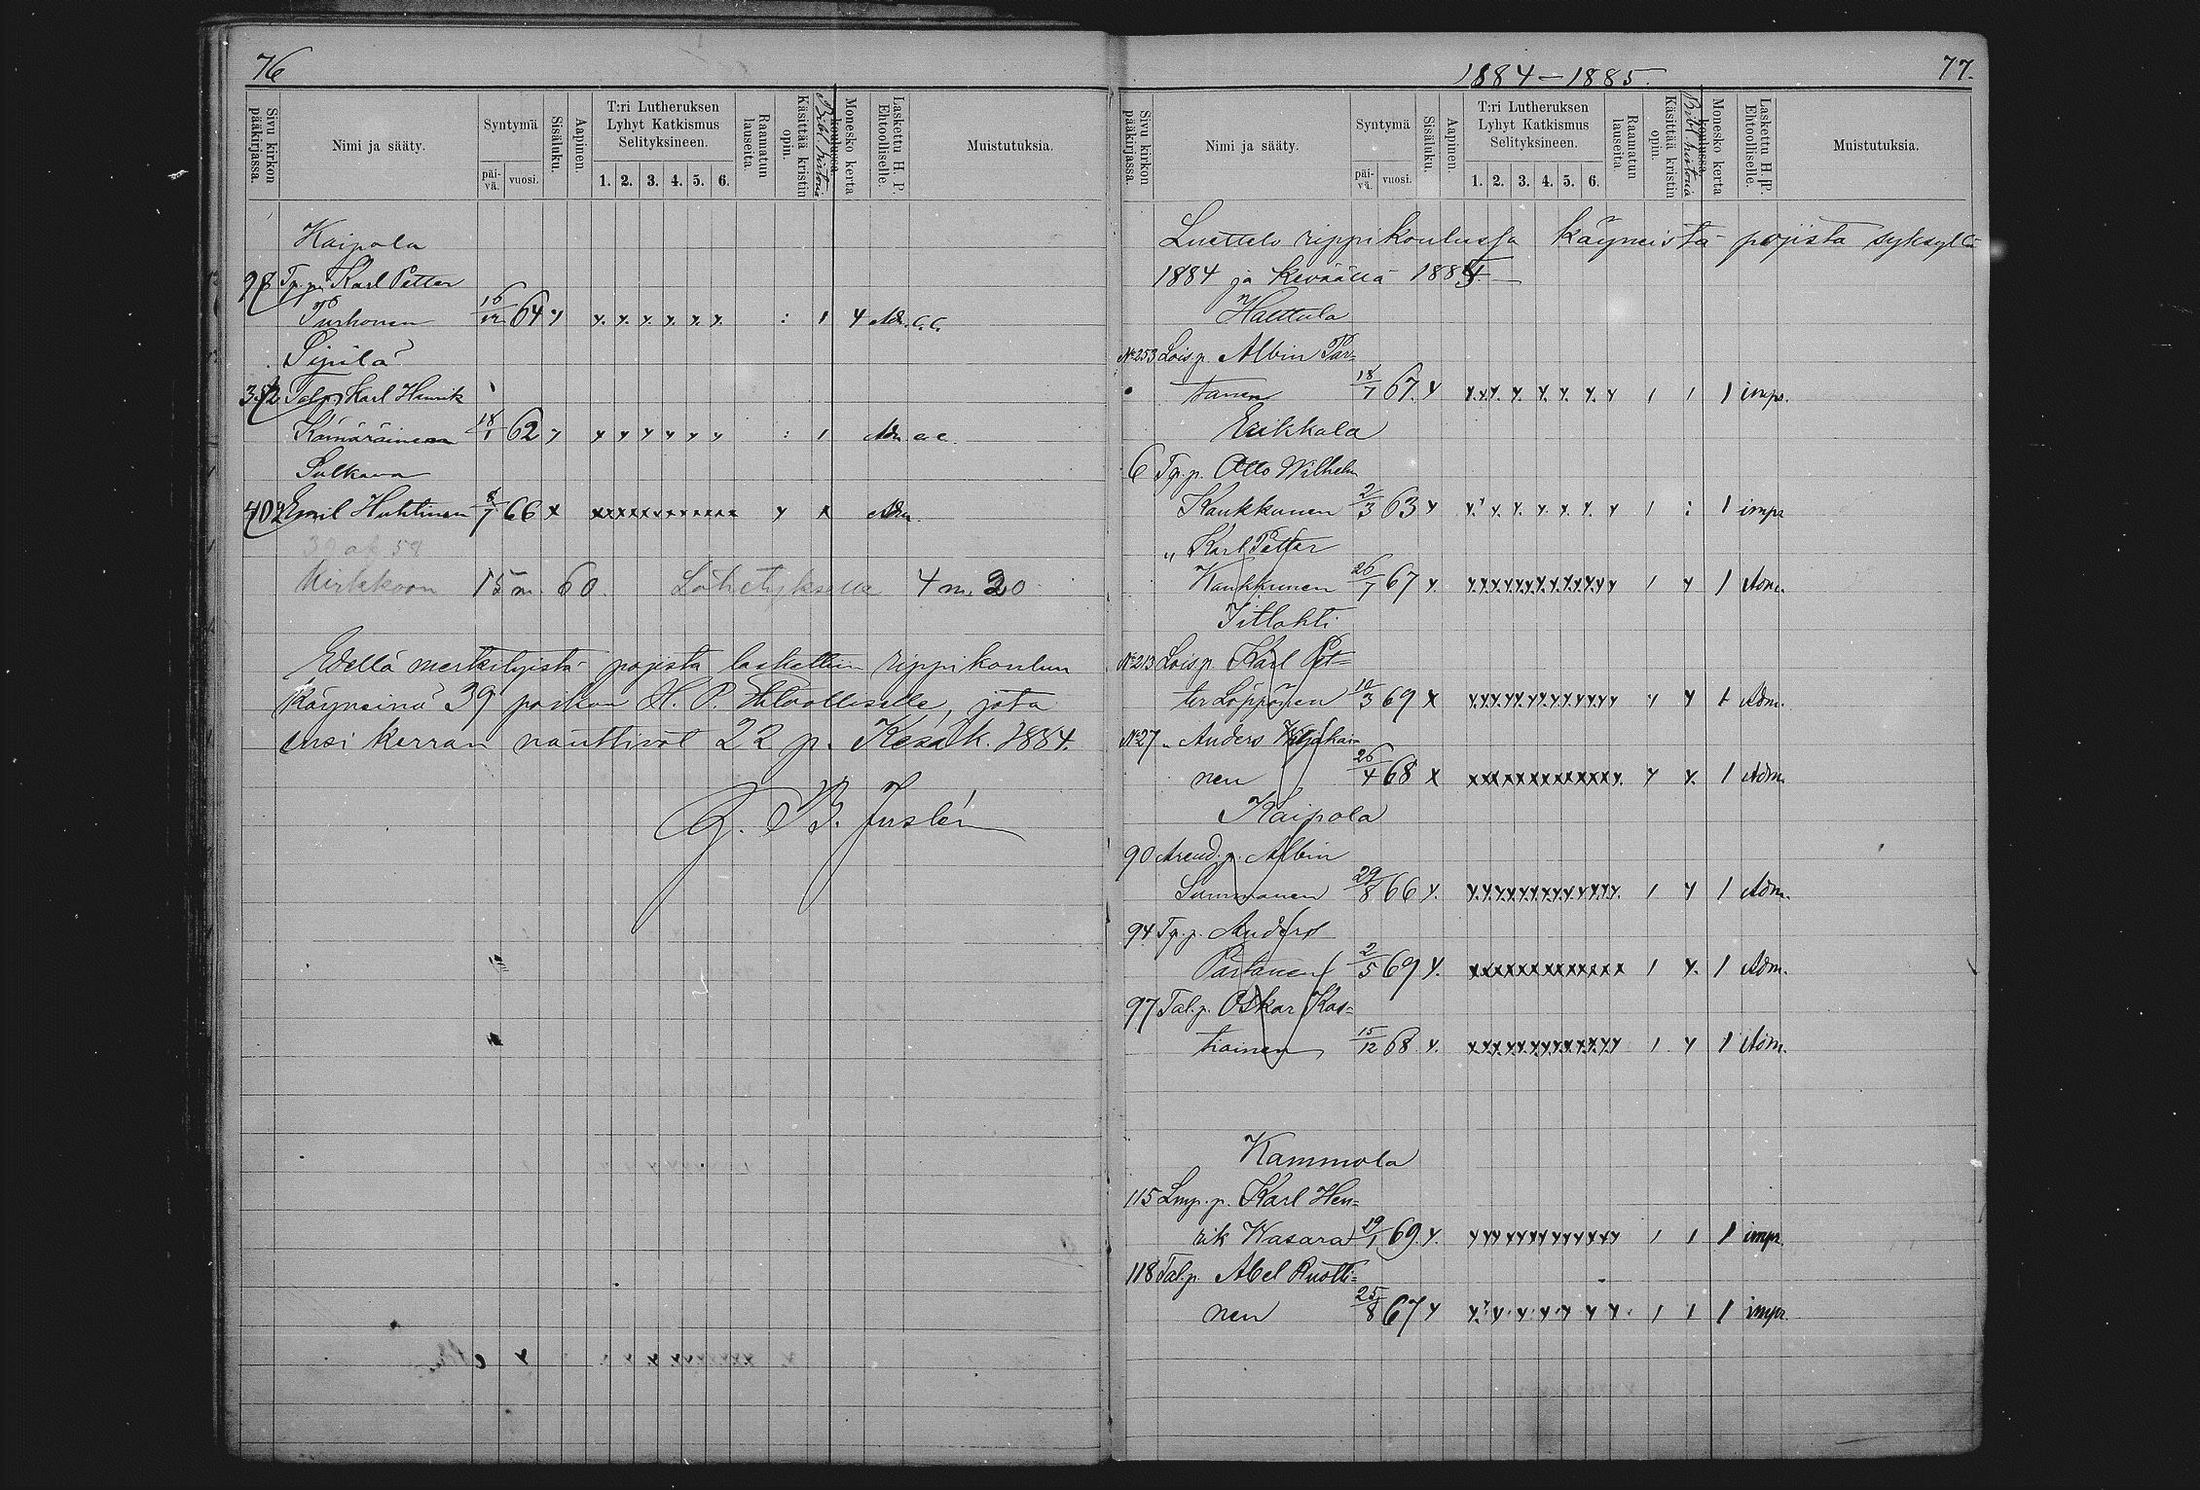 76
Sivu kirkon pääkirjassa.
Nimi ja sääty.
Syntymä
päi-vä.
vuosi.
Sisäluku.
Aapinen.
T:ri Lutheruksen
Lyhyt Katkismus
Selityksineen.
1. 2. 3. 4. 5. 6.
Raamatun lauseita.
Käsittää kristin opin.
Bibl. historia
Monesko kerta koulussa.
Laskettu H. P. Ehtoolliselle.
Muistutuksia.
Kaipola
98 Tp.p. Karl Petter
Turhonen 16/12 64 y y. y. y. y. y. y. : 1 4 Adm. c.c.
Sipilä
352 Talp. Karl Henrik
Kämäräinen 18/1 62 y y y y y y y : 1 Adm c.c.
Sulkava
402 Emil Huhtinen 8/7 66 x xxxxxxxxxxxx y x Adm.
Kirkkoon 15 m. 60. Lähetykselle 4 m. 20
Edellä merkityistä pojista laskettiin rippikoulun
käyneinä 39 poikaa H. P. Ehtoolliselle, jota
ensi kerran nauttivat 22 p. Kesäk. 1884.
G. B. Juslén
77.
1884–1885.
Sivu kirkon pääkirjassa.
Nimi ja sääty.
Syntymä
päi-vä.
vuosi.
Sisäluku.
Aapinen.
T:ri Lutheruksen
Lyhyt Katkismus
Selityksineen.
1. 2. 3. 4. 5. 6.
Raamatun lauseita.
Käsittää kristin opin.
Bibl. historia
Monesko kerta koulussa.
Laskettu H. P. Ehtoolliselle.
Muistutuksia.
Luettelo rippikoulussa käyneistä pojista syksyllä
1884 ja keväällä 1885.
Haettula
No 253 Lois p. Albin Par-
tanen 18/7 67. y y.y.y. y y. y. y. y 1 1 1 imp.
Erikkala
6 Tp.p. Otto Wilhelm
Kaukkunen 2/3 63 y y.y. y. y. y. y. y 1 : 1 impr
" Karl Petter
Kaukkunen 26/7 67 y. y.y.y.y.y.y.y.y.y.y.y 1 y 1 Adm.
Iitlahti
No 213 Lois p. Karl Pet=
ter Löppönen 10/3 69 x y.y.y.y.y.y.y.y.y.y.y y y 1 Adm.
No 27 " Anders
nen 26/4 68 x xxxxxxxxxxxxy. y y. 1 Adm.
Kaipola
90 Arend. p. Albin
Summanen 29/8 66 y. y.y.y.y.y.y.y.y.y.y.y. 1 y 1 Adm.
94 Tp.p. Anders
Partanen 2/5 69 y. xxxxxxxxxxxxx 1 y. 1 Adm.
97 Tal.p. Oskar Kas=
tiainen 15/12 68 y. x.y.y.y.y.y.y.y.y.y.y 1 y 1 Adm.
Kammola
115 Lmp. p. Karl Hen=
rik Wasara 19/1 69. y. yyyyyyyyyyyy 1 1 1 impr.
118 Tal.p. Abel Ruotti=
nen 25/8 67 y y.y.y.y.y.y y y. 1 1 1 impr.